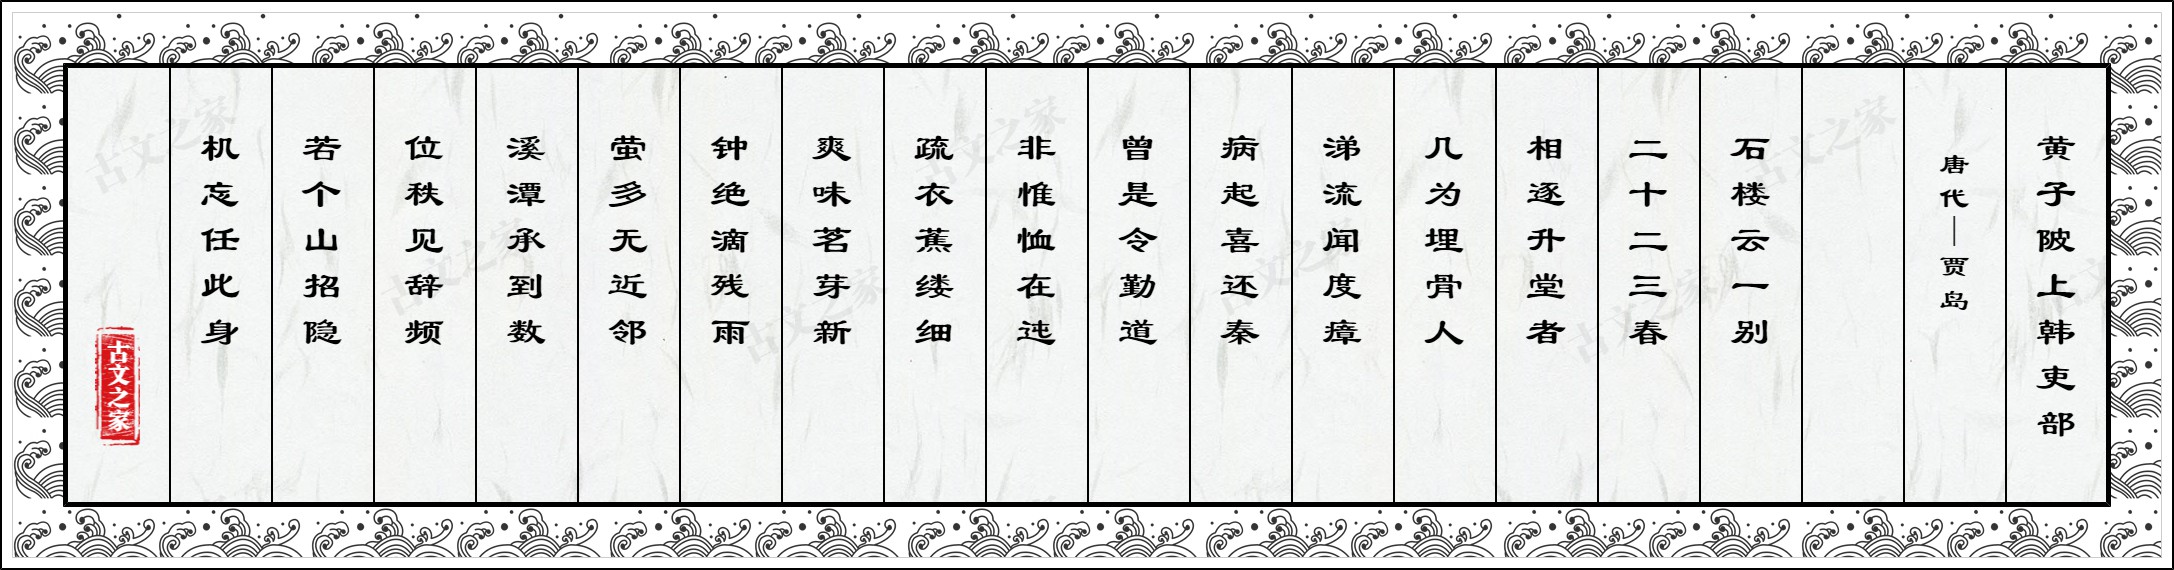 黄子陂上韩吏部
唐代—贾岛
石楼云一别
二十二三春
相逐升堂者
几为埋骨人
涕流闻度瘴
病起喜还秦
曾是令勤道
非惟恤在迍
疏衣蕉缕细
爽味茗芽新
钟绝滴残雨
萤多无近邻
溪潭承到数
位秩见辞频
若个山招隐
机忘任此身
古文之家